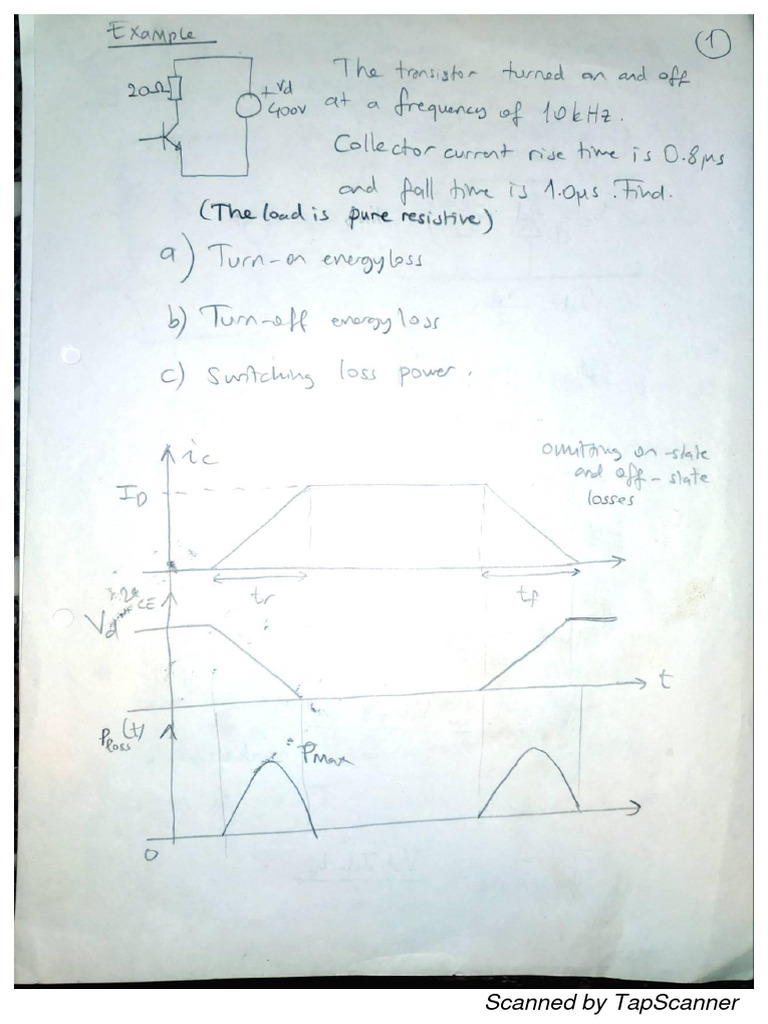 Example
1
20Ω
+ Vd
400V
The transistor turned on and off
at a frequency of 10kHz.
Collector current rise time is 0.8μs
and fall time is 1.0μs. Find.
(The load is pure resistive)
a) Turn-on energy loss
b) Turn-off energy loss
c) Switching loss power.
omitting on-state
and off-state
losses
ic
ID
tr
tf
CE
Vd
t
Ploss(t)
PMax
0
Scanned by TapScanner